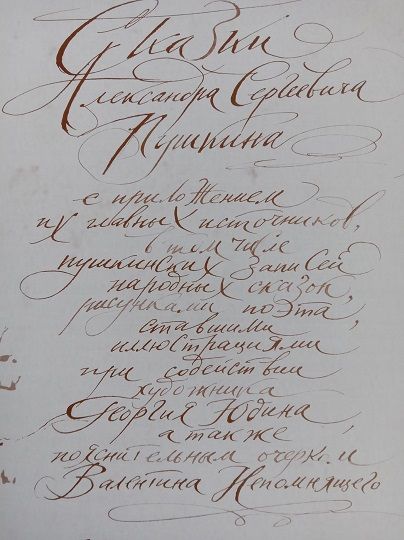 Сказки
Александра Сергеевича
Пушкина
с приложением
их главных источников,
в том числе
пушкинских записей
народных сказок,
рисунками поэта,
ставшими
иллюстрациями
при содействии
художника
Георгия Юдина,
а также
пояснительным очерком
Валентина Непомнящего